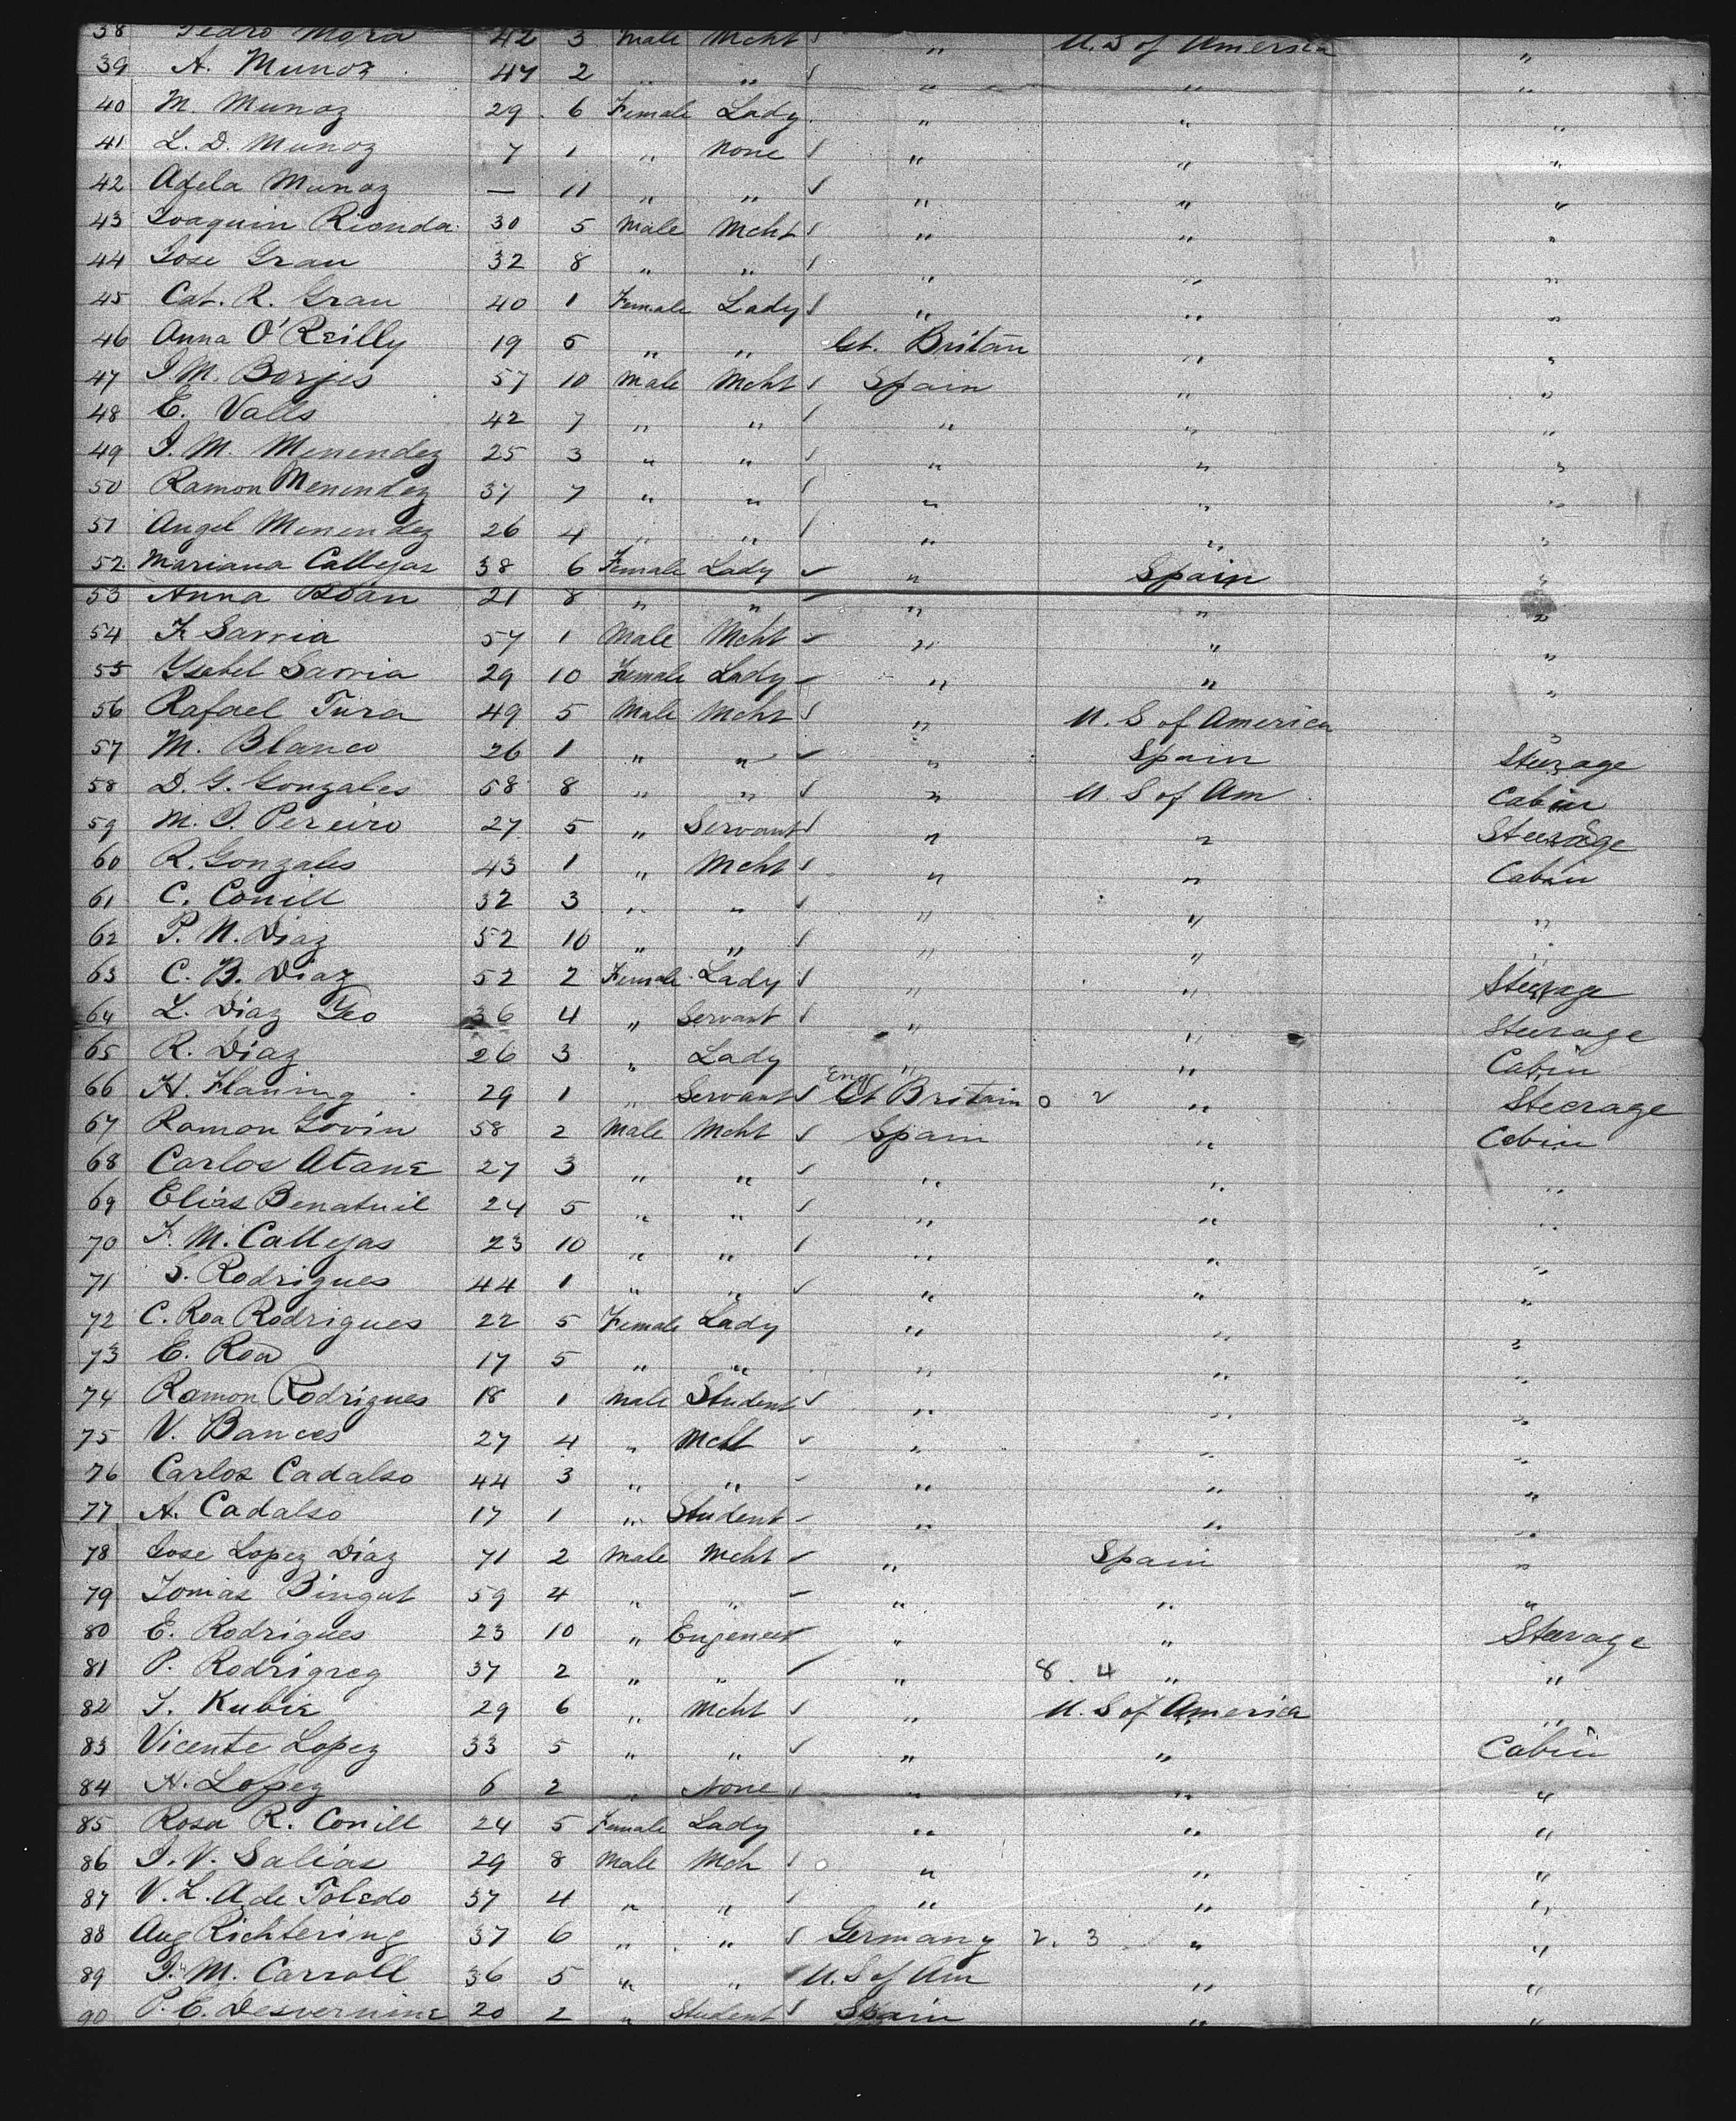 38 Pedro Mora 42 3 Male Mcht ✓ " U.S of America "
39 A. Munoz 47 2 " " ✓ " " "
40 M. Munoz 29 6 Female Lady " " "
41 L. D. Munoz 7 1 " None ✓ " " "
42 Adela Munoz — 11 " " ✓ " "
43 Joaquin Rionda 30 5 Male Mcht ✓ " " "
44 Jose Grau 32 8 " " ✓ " " "
45 Cat. R. Grau 40 1 Female Lady ✓ " " "
46 Anna O'Reilly 19 5 " " Gt. Britan " "
47 J M. Borjes 57 10 Male Mcht ✓ Spain " "
48 E. Valls 42 7 " " ✓ " " "
49 J. M. Menendez 25 3 " " ✓ " " "
50 Ramon Menendez 37 7 " " ✓ " " "
51 Angel Menendez 26 4 " " ✓ " " "
52 Mariana Callejas 38 6 Female Lady ✓ " Spain "
53 Anna 21 8 " " ✓ " " "
54 F Sarria 57 1 Male Mcht ✓ " " "
55 Ysabel Sarria 29 10 Female Lady ✓ " " "
56 Rafael Tura 49 5 Male Mcht ✓ " U. S of America "
57 M. Blanco 26 1 " " ✓ " Spain Steerage
58 D. G. Gonzales 58 8 " " ✓ " U. S of Am Cabin
59 M. J. Pereiro 27 5 " Servant ✓ " " Steerage
60 R. Gonzales 43 1 " Mcht ✓ " " Cabin
61 C. Conill 32 3 " " ✓ " " "
62 P. N. Diaz 52 10 " " ✓ " " "
63 C. B. Diaz 52 2 Female Lady ✓ " " Steerage
64 L. Diaz 36 4 " Servant ✓ " " Steerage
65 R. Diaz 26 3 " Lady " " Cabin
66 H. Flaning 29 1 " Servant ✓ Eng Gt Britain 0 2 " Steerage
67 Ramon 58 2 Male Mcht ✓ Spain " Cabin
68 Carlos Atane 27 3 " " ✓ " " "
69 Elias Benatuil 24 5 " " ✓ " " "
70 F. M. Callejas 23 10 " " ✓ " " "
71 S. Rodrigues 44 1 " " ✓ " " "
72 C. Roa Rodrigues 22 5 Female Lady " " "
73 E. Roa 17 5 " " " " "
74 Ramon Rodrigues 18 1 Male Student ✓ " " "
75 V. Bances 27 4 " Mcht ✓ " " "
76 Carlos Cadalso 44 3 " " ✓ " " "
77 A. Cadalso 17 1 " Student ✓ " " "
78 Jose Lopez Diaz 71 2 Male Mcht ✓ " Spain "
79 Tomas Bingut 59 4 " " ✓ " " "
80 E. Rodrigues 23 10 " Engeneer ✓ " " Steerage
81 P. Rodrigreg 37 2 " " ✓ " 8 4 " "
82 Kubie 29 6 " Mcht ✓ " U. S of America "
83 Vicente Lopez 33 5 " " ✓ " " Cabin
84 N. Lopez 6 2 " None ✓ " " "
85 Rosa R. Conill 24 5 Female Lady " " "
86 J. V. Salias 29 8 Male Mch ✓ " " "
87 V. L. A de Toledo 37 4 " " ✓ " " "
88 Aug Richtering 37 6 " " ✓ Germany 2. 3 " "
89 J. M. Carroll 36 5 " " ✓ U. S of Am " "
90 P. E. Desvernine 20 2 " Student ✓ Spain " "